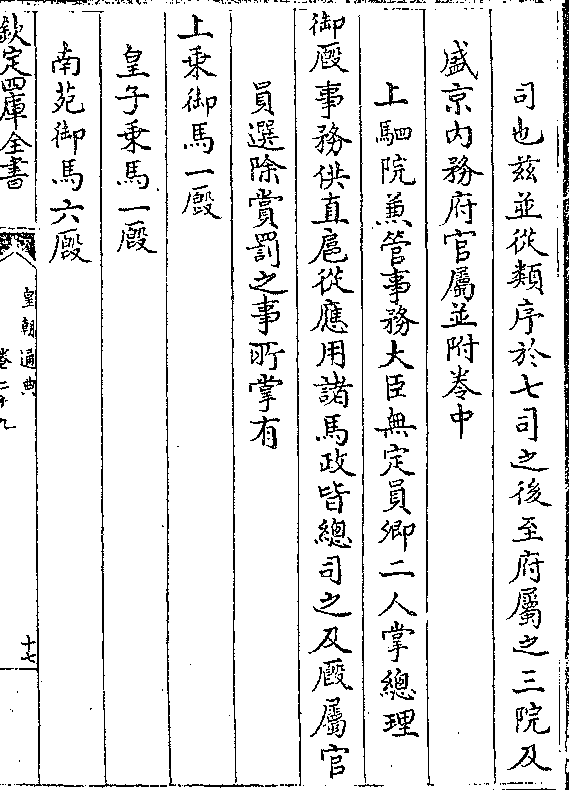 司也兹並從類序於七司之後至府屬之三院及
盛京内務府官屬並附巻中
上駟院兼管事務大臣無定員卿二人掌總理
御厩事務供直扈從應用諸馬政皆總司之及厩屬官
員選除賞罰之事所掌有
上乗御馬一厩
皇子乗馬一厩
南苑御馬六厩
欽定四庫全書
皇朝通典
巻二十九
十七